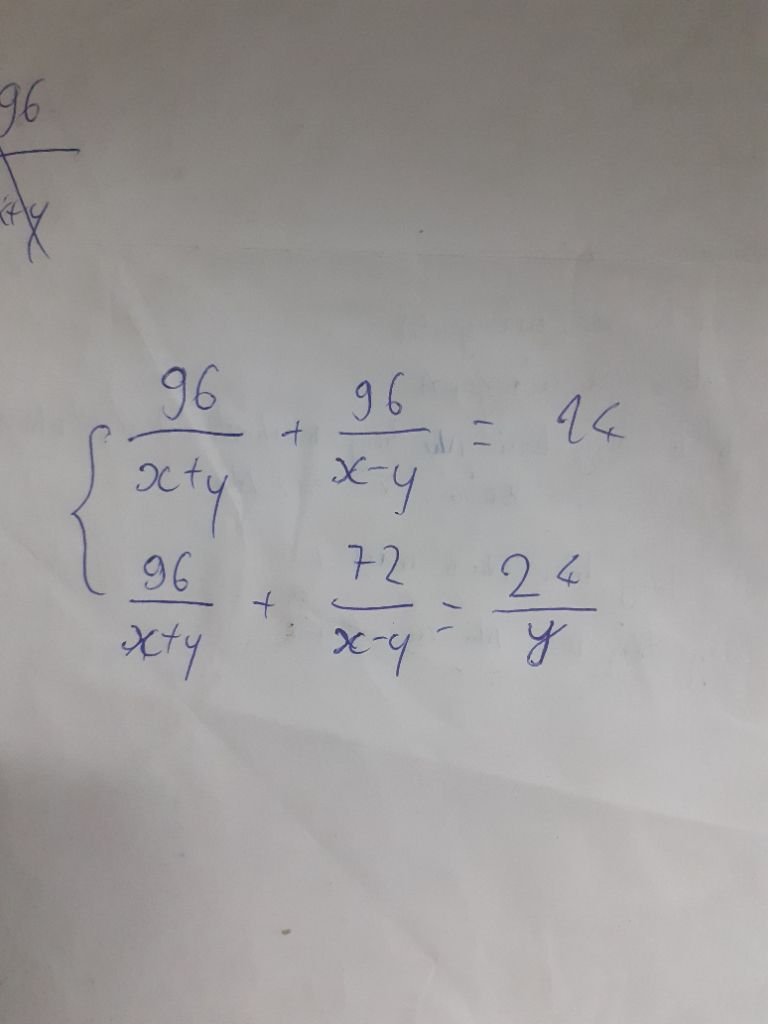 96
x+y
96/(x+y) + 96/(x-y) = 24
96/(x+y) + 72/(x-y) = 24/y